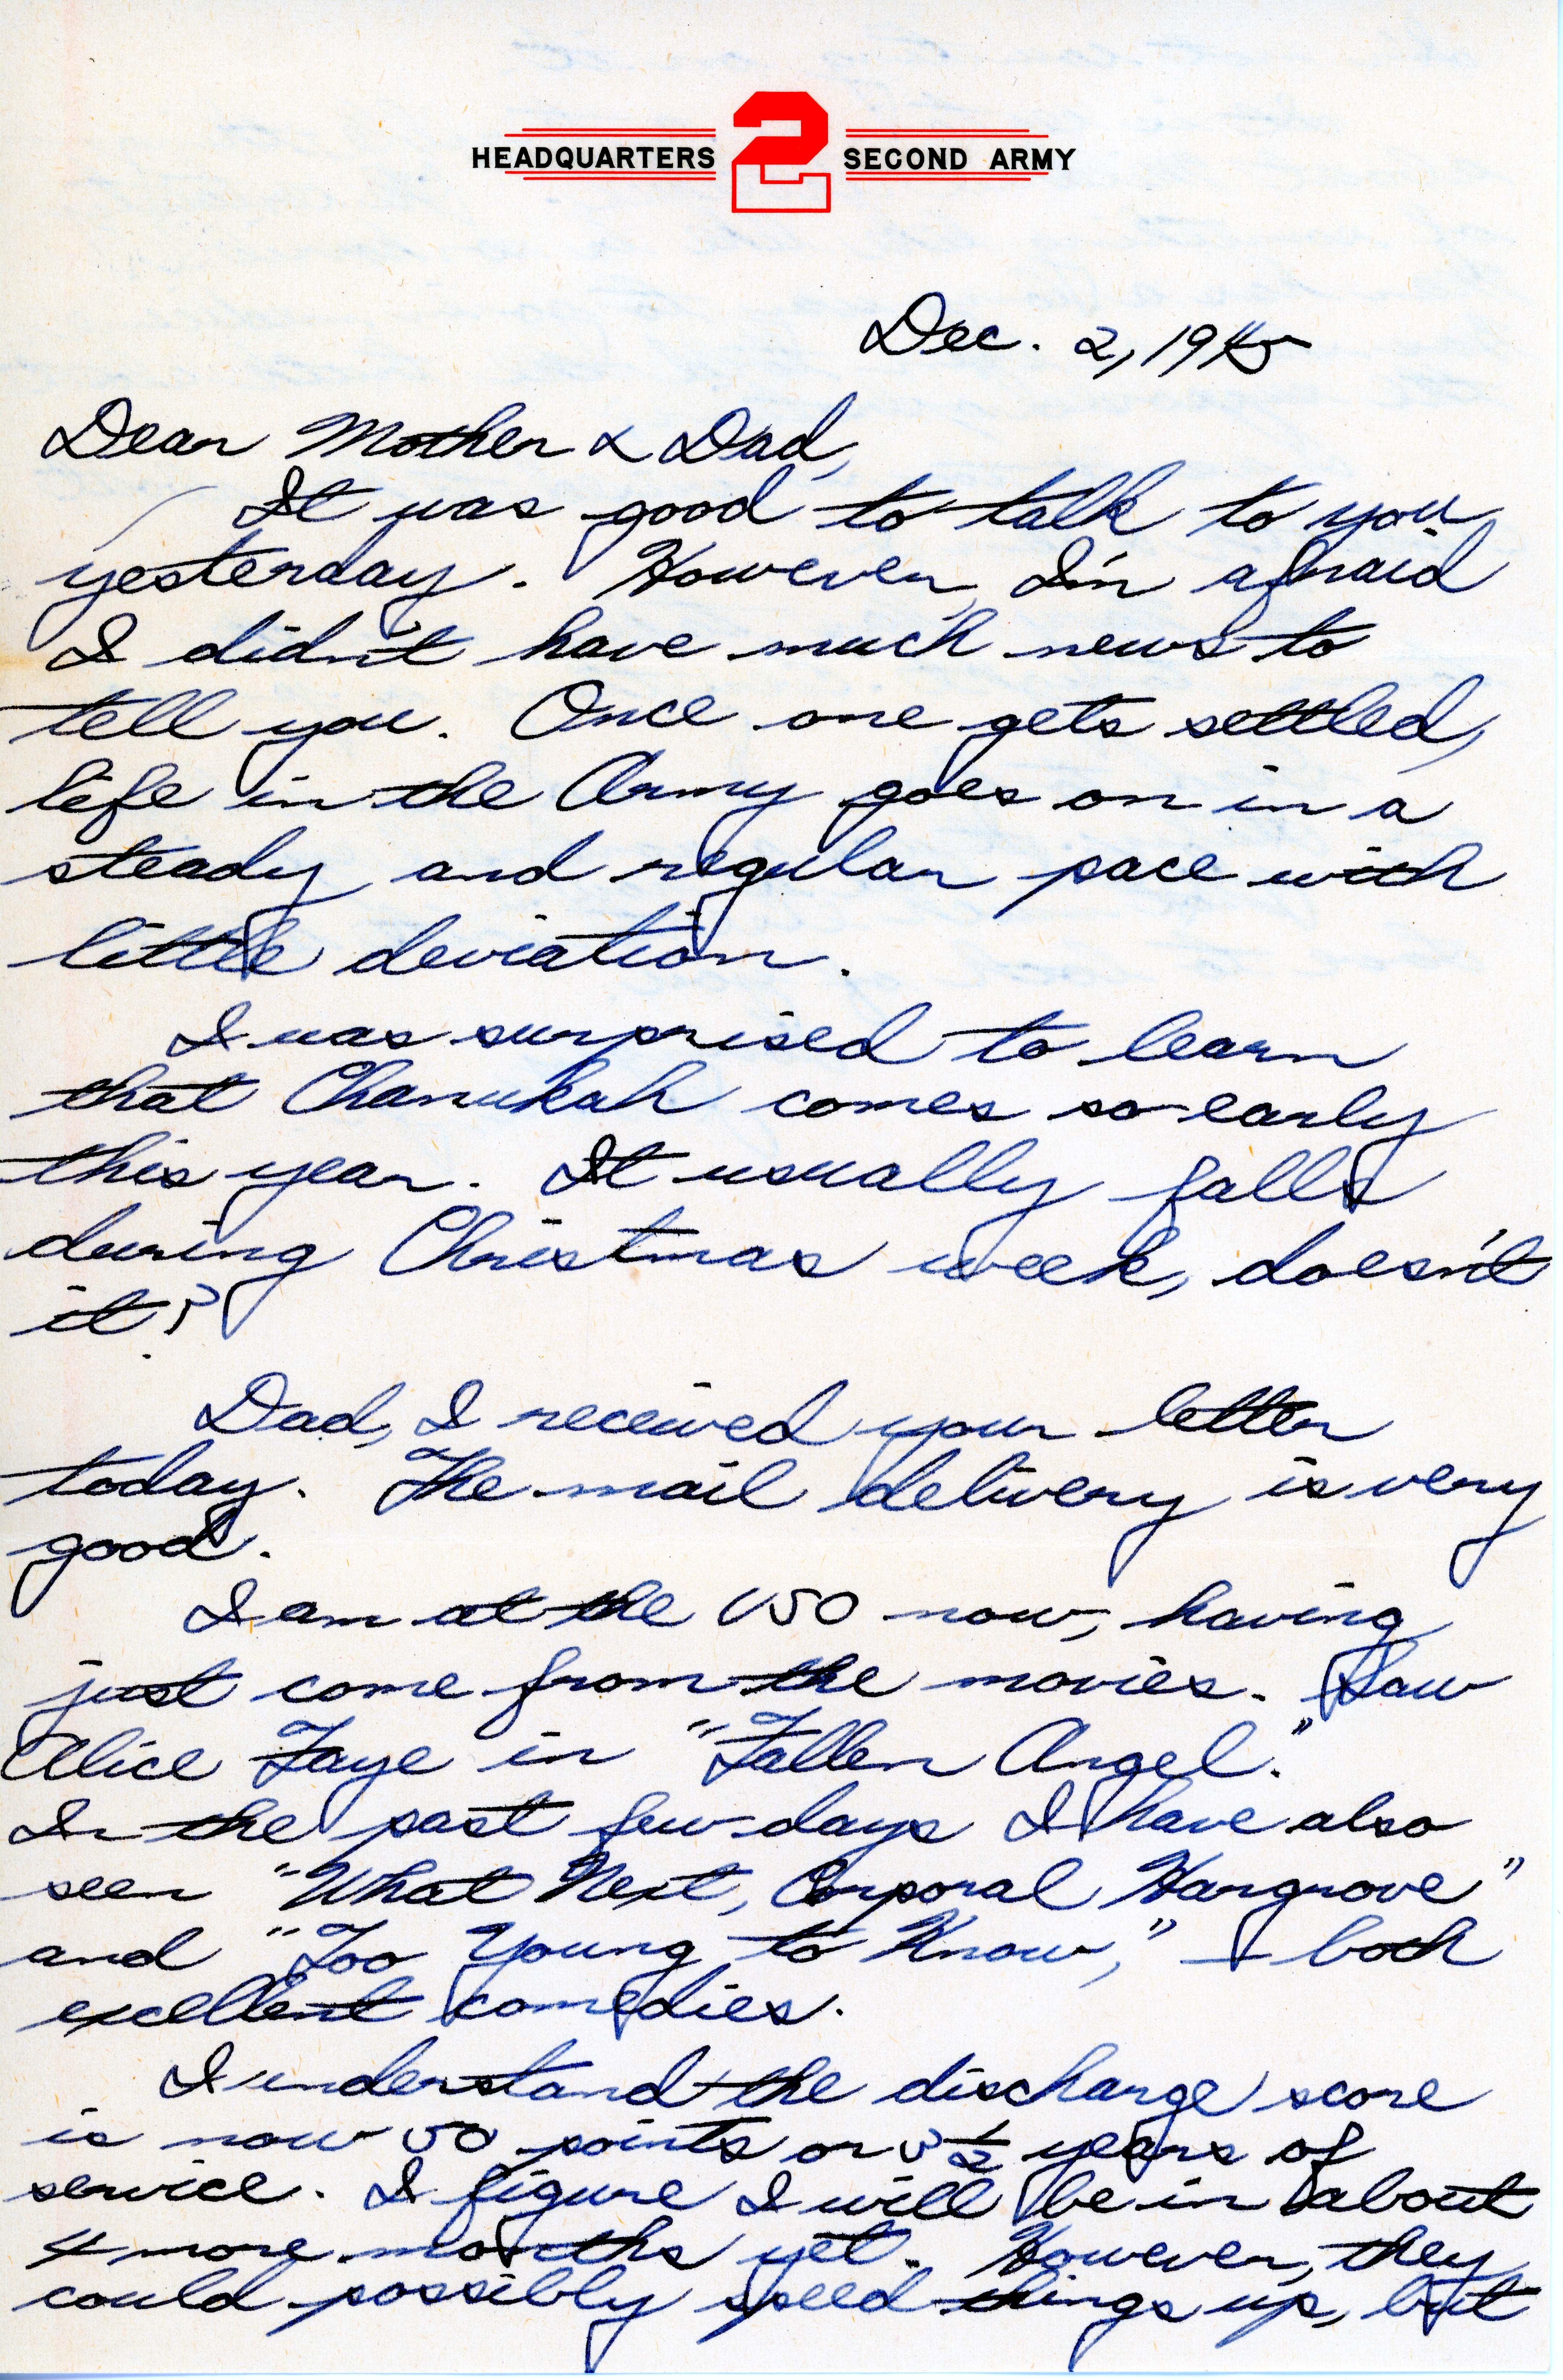 HEADQUARTERS 2 SECOND ARMY
Dec. 2, 1945
Dear Mother & Dad,
It was good to talk to you
yesterday. However, I'm afraid
I didn't have much news to
tell you. Once one gets settled,
life in the Army goes on in a
steady and regular pace with
little deviation.
I was surprised to learn
that Chanukah comes so early
this year. It usually falls
during Christmas week, doesn't
it?
Dad, I received your letter
today. The mail delivery is very
good.
I am at the USO now, having
just come from the movies. Saw
Alice Faye in "Fallen Angel."
In the past few days I have also
seen "What Next, Corporal Hargrove"
and "Too Young to Know," – both
excellent comedies.
I understand the discharge score
is now 50 points or 3 1/2 years of
service. I figure I will be in about
4 more months yet. However, they
could possibly speed things up, but